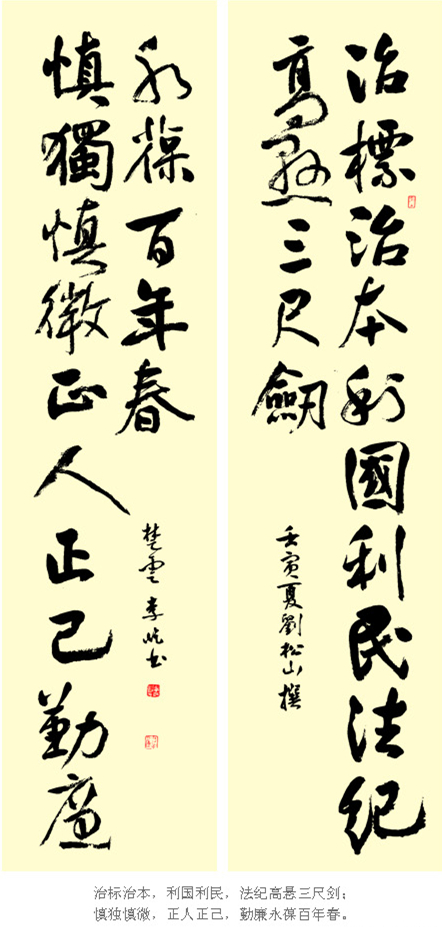 治標治本利國利民法紀
高懸三尺劔
壬寅夏劉松山撰
慎獨慎微正人正己勤廉
永葆百年春
楚雲李屹书
治标治本，利国利民，法纪高悬三尺剑；
慎独慎微，正人正己，勤廉永葆百年春。